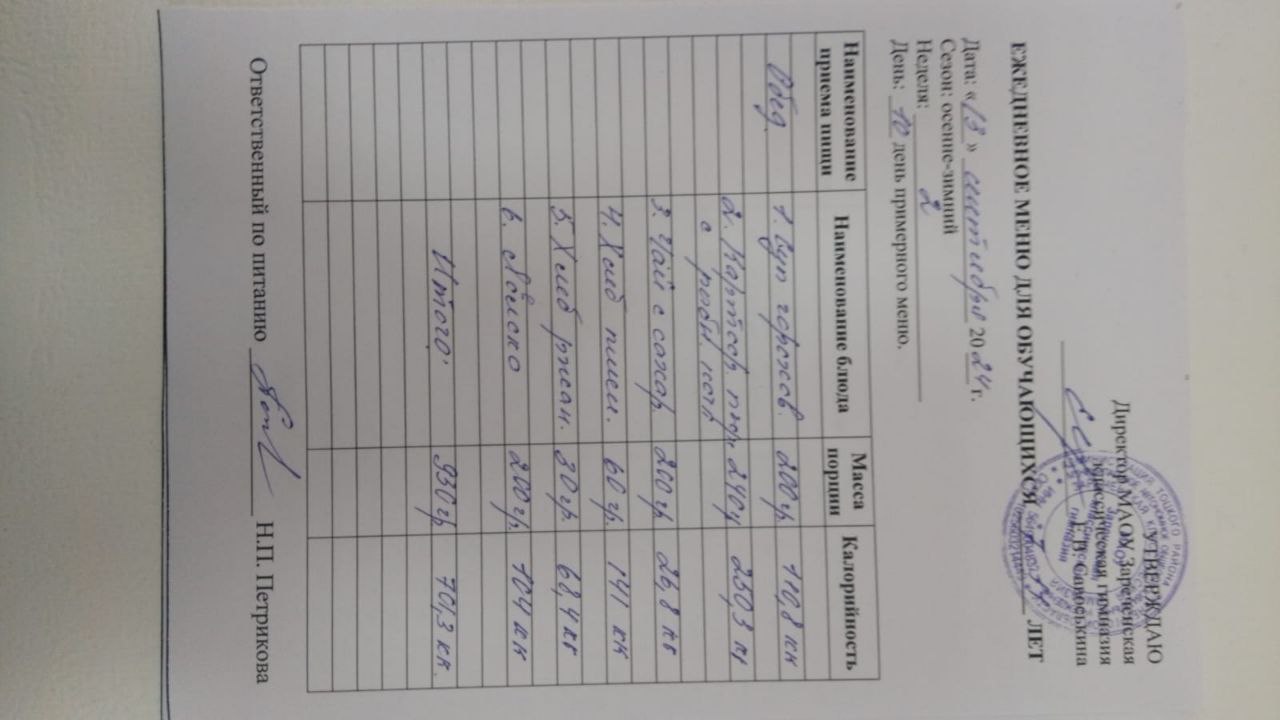 УТВЕРЖДАЮ
Директор МАОУ Зареченская
классическая гимназия
Е.В. Савоськина
ЕЖЕДНЕВНОЕ МЕНЮ ДЛЯ ОБУЧАЮЩИХСЯ ЛЕТ
Дата: «13» сентября 2024 г.
Сезон: осенне-зимний
Неделя: 2
День: 10 день примерного меню.
Наименование приема пищи Наименование блюда Масса порции Калорийность
Обед 1. Суп горохов. 200гр 110,8 кк
2. Картоф. пюре 240гр 250,3 кк
с рыбн. котл
3. Чай с сахар 200гр 26,8 кк
4. Хлеб пшен. 60гр. 141 кк
5. Хлеб ржан. 30гр. 68,4 кк
6. Яблоко 200гр. 104 кк
Итого: 930гр 70,3 кк.
Ответственный по питанию Н.П. Петрикова